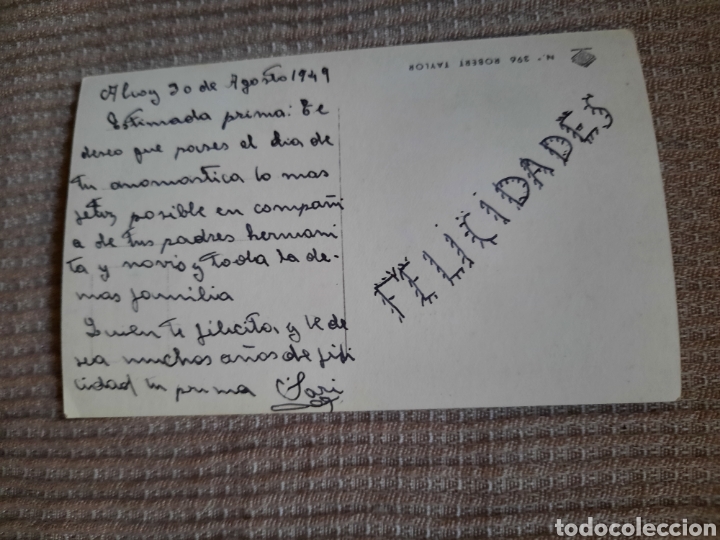 Alcoy 30 de Agosto 1949
Estimada prima: Te
deseo que pases el dia de
tu anomastica lo mas
feliz posible en compañi
a de tus padres hermani
ta y novio y toda la de-
mas familia
te felicita, y te de
sea muchos años de feli
cidad tu prima
FELICIDADES
N.º 396 ROBERT TAYLOR
todocoleccion